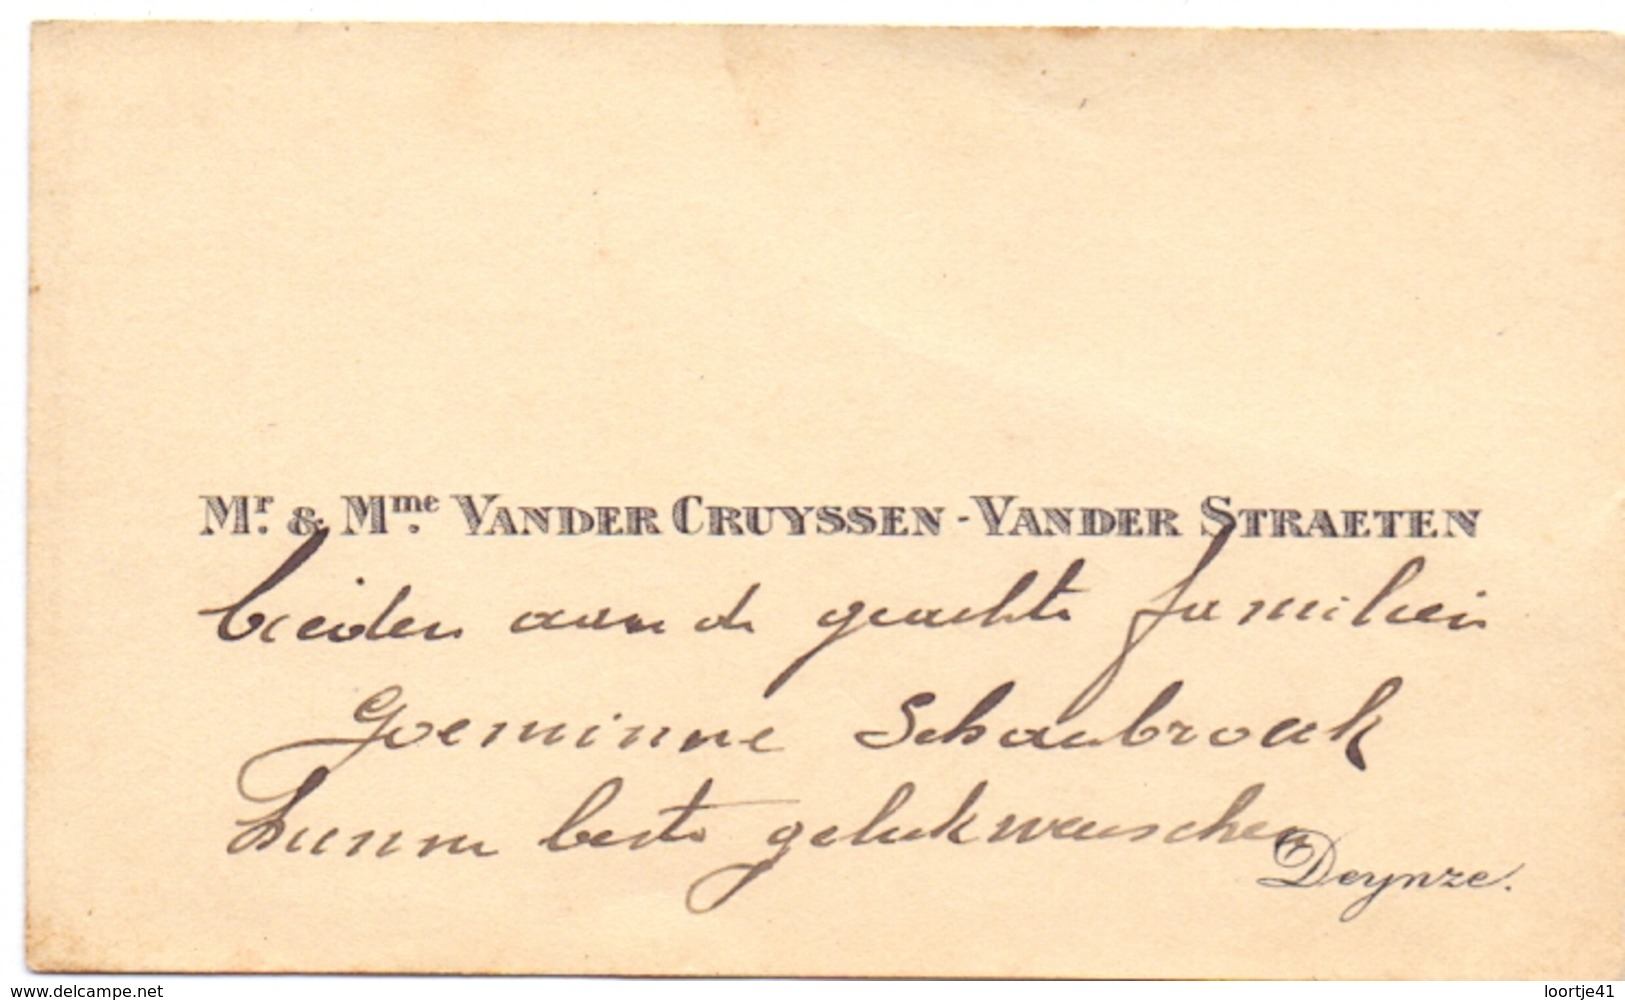 Mr. & Mme. VANDER CRUYSSEN - VANDER STRAETEN
bieden aan de geachte familien
Goeminne Schaubrouck
hunne beste gelukwenschen
Deynze.
www.delcampe.net
loortje41